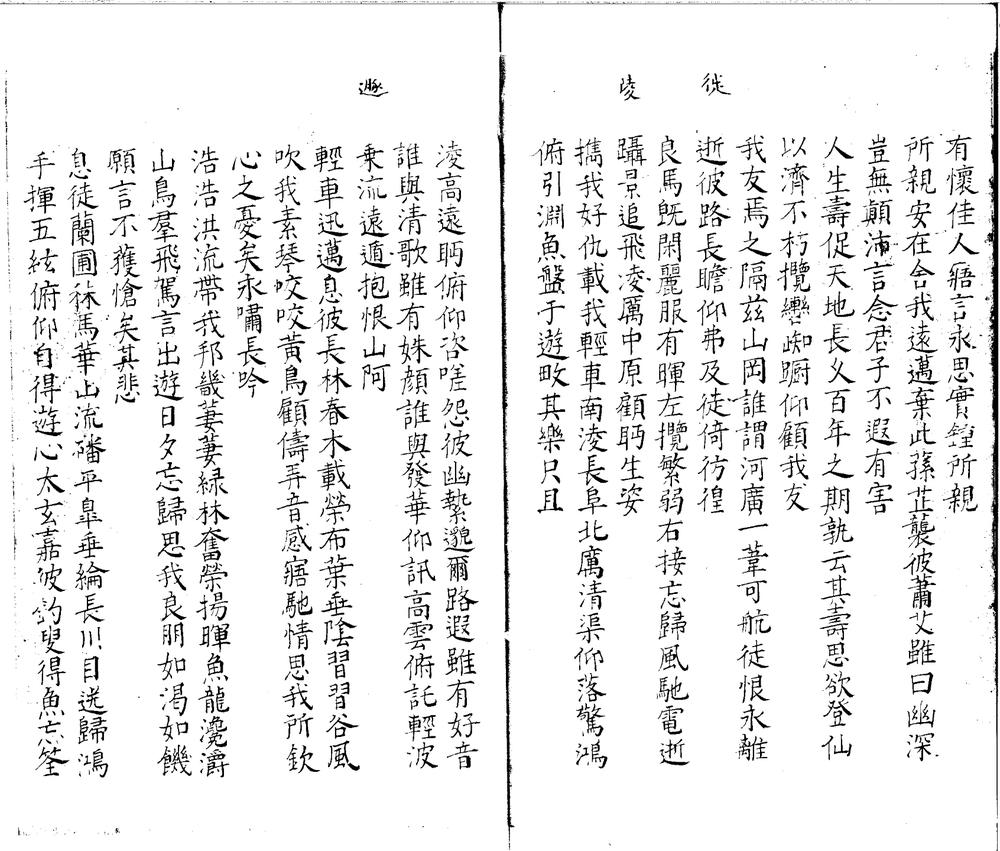 徙
陵
有懷佳人寤言永思實鍾所親
所親安在舍我遠邁棄此蓀芷襲彼蕭艾雖曰幽深
豈無顛沛言念君子不遐有害
人生壽促天地長久百年之期孰云其壽思欲登仙
以濟不朽攬轡踟躕仰顧我友
我友焉之隔茲山岡誰謂河廣一葦可航徒恨永離
逝彼路長瞻仰弗及徒倚彷徨
良馬旣閑麗服有暉左攬繁弱右接忘歸風馳電逝
躡景追飛凌厲中原顧眄生姿
攜我好仇載我輕車南淩長阜北厲清渠仰落驚鴻
俯引淵魚盤于遊畋其樂只且
遯
淩高遠眄俯仰咨嗟怨彼幽縶邈爾路遐雖有好音
誰與清歌雖有姝顏誰與發華仰訊高雲俯託輕波
乘流遠遁抱恨山阿
輕車迅邁息彼長林春木載榮布葉垂陰習習谷風
吹我素琴咬咬黃鳥顧儔弄音感寤馳情思我所欽
心之憂矣永嘯長吟
浩浩洪流帶我邦畿萋萋緑林奮榮揚暉魚龍瀺灂
山鳥羣飛駕言出遊日夕忘歸思我良朋如渴如饑
願言不獲愴矣其悲
息徒蘭圃秣馬華山流磻平臯垂綸長川目送歸鴻
手揮五絃俯仰自得遊心太玄嘉彼釣叟得魚忘筌